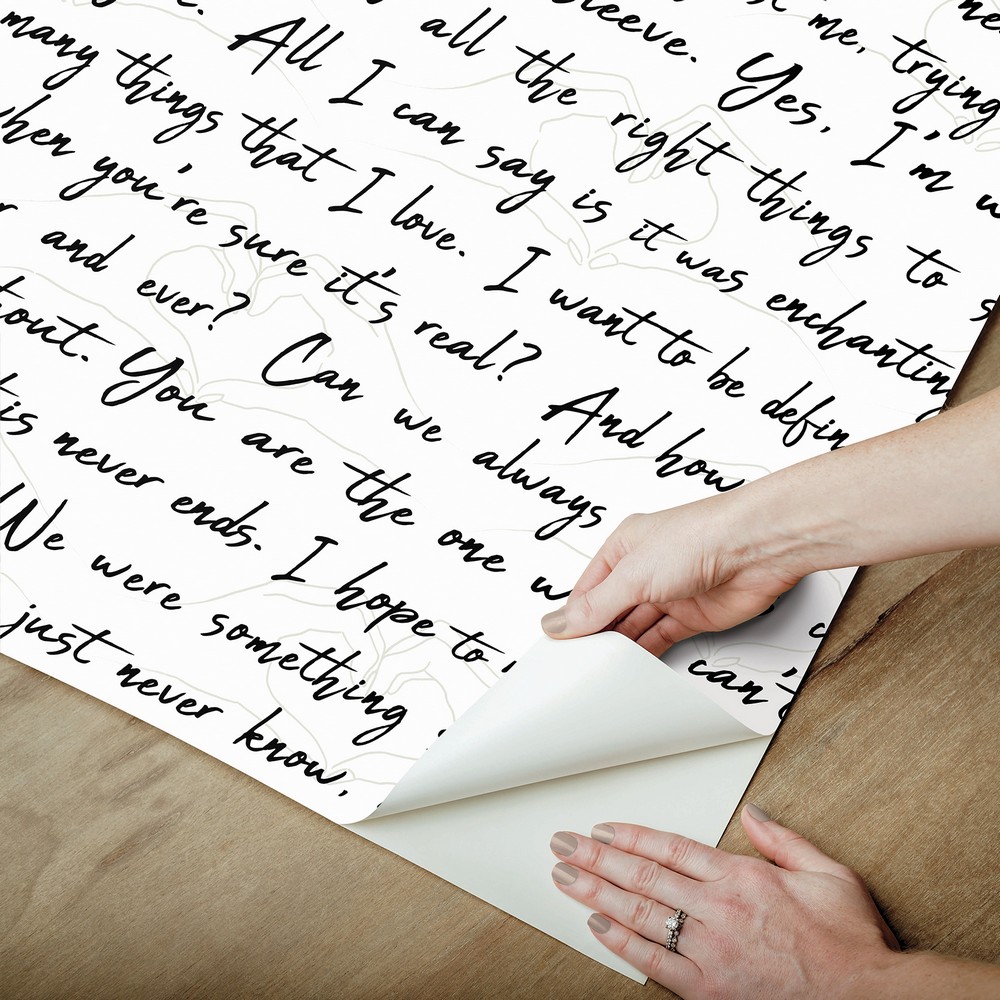 me, trying
sleeve. Yes, I'm
all the right things to
All I can say is it was enchanting
many things that I love. I want to be defin
hen you're sure it's real? And how
and ever? Can we always
out. You are the one can't
is never ends. I hope to
We were something
just never know,